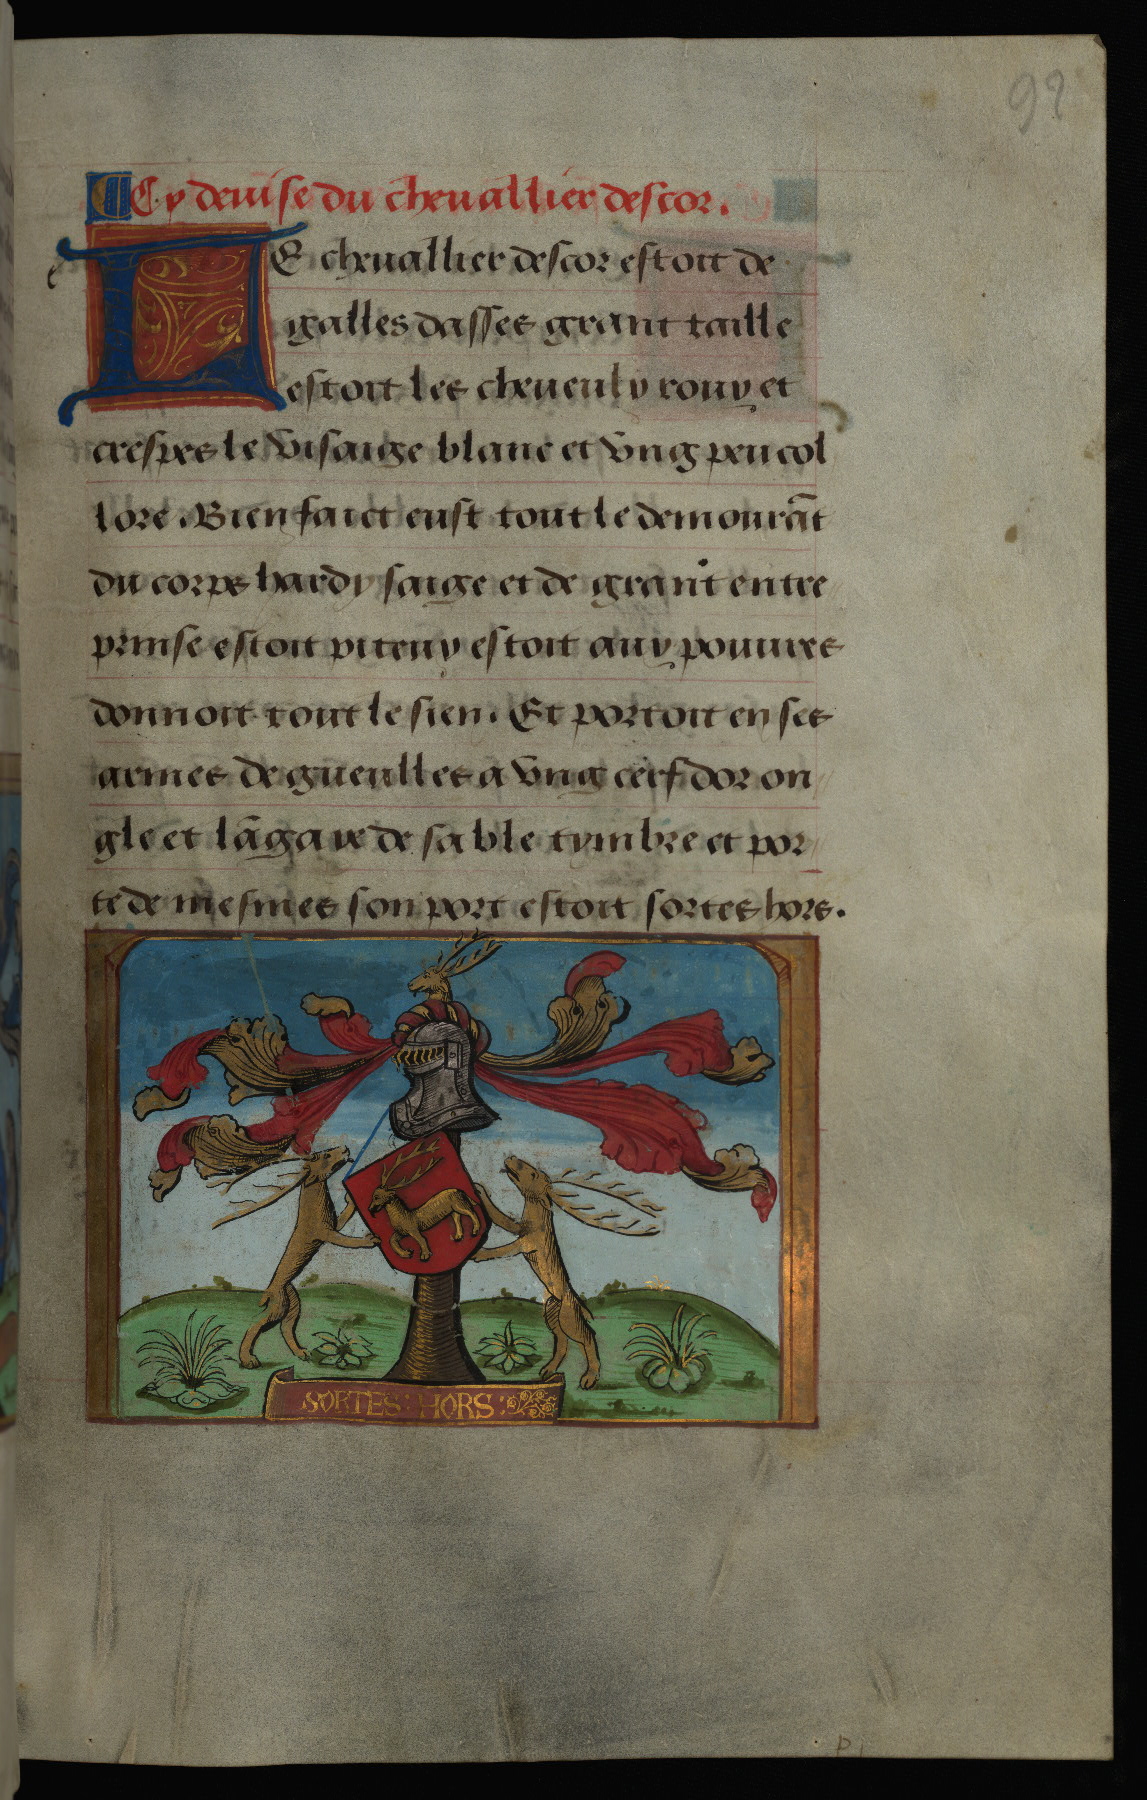 92
Cy deuise du cheuallier descor.
LE cheuallier descor estoit de
galles dasses grant taille
estoit les cheueulx roux et
crespes le visaige blanc et vng peu col
lore. Bien faict eust tout le demourāt
du corps hardy saige et de grant entre
prinse estoit piteux estoit aux pouures
donnoit tout le sien. Et portoit en ses
armes de gueulles a vng cerf dor on
gle et lāgaie de sable tymbre et por
te de mesmes son port estoit sortes hors.
SORTES: HORS: